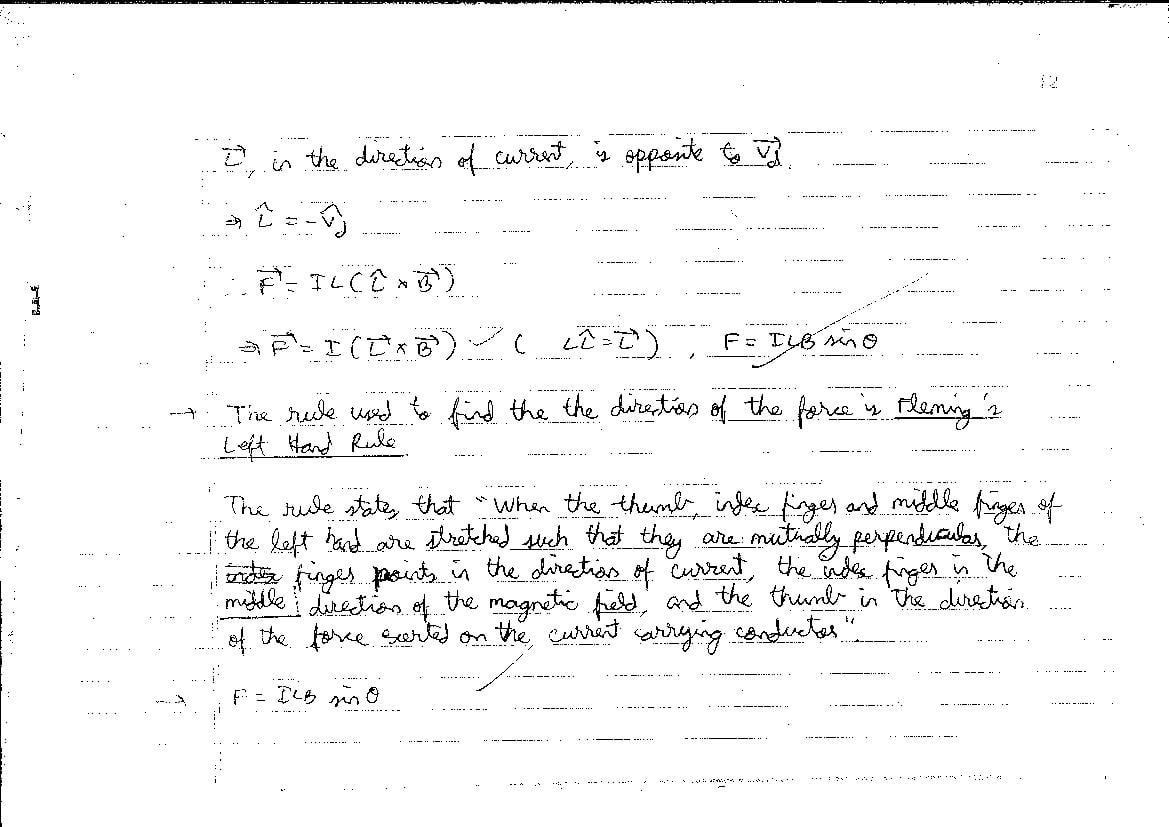 12
L⃗, in the direction of current, is opposite to V⃗d
⇒ L̂ = -V̂d
∴ F⃗ = IL(L̂ × B⃗)
⇒ F⃗ = I(L⃗ × B⃗) (LL̂ = L⃗), F = ILB sin θ
→ The rule used to find the the direction of the force is Fleming's
Left Hand Rule
The rule states that "When the thumb, index finger and middle finger of
the left hand are stretched such that they are mutually perpendicular, the
index finger points in the direction of current, the index finger in the
middle direction of the magnetic field, and the thumb in the direction
of the force exerted on the current carrying conductor".
→ F = ILB sin θ